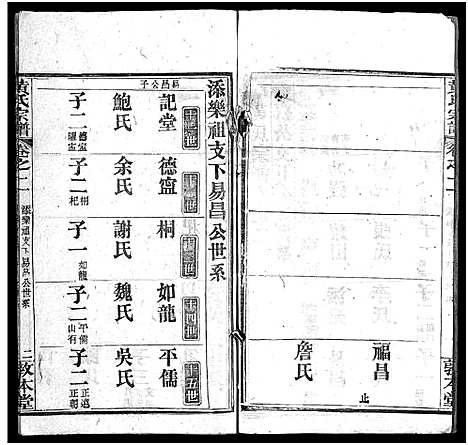 黃氏宗譜
卷之二
福昌
止
詹氏
敦本堂
添樂祖支下易昌公世系
易昌公子
十一世
記堂
鮑氏
子二 德寍
十二世
德寍
余氏
子二 桐 杞
十三世
桐
謝氏
子一 如龍
十四世
如龍
魏氏
子二 平儒 山有
十五世
平儒
吳氏
子二 正選 正朝
黃氏宗譜
卷之二
添樂祖支下易昌公世系
三
敦本堂